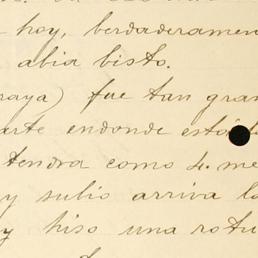 hoy, berdaderamen
abia bisto.
raya) fue tan gran
arte endonde está
tendra como 4. me
y subio arriva la
y hiso una rotu